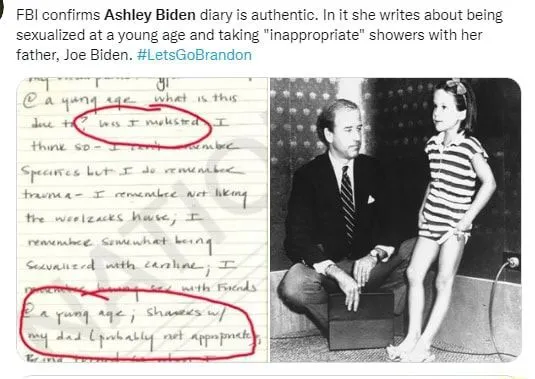 FBI confirms Ashley Biden diary is authentic. In it she writes about being
sexualized at a young age and taking "inappropriate" showers with her
father, Joe Biden. #LetsGoBrandon
@ a yung age what is this
due to? Was I molested I
think so - I can't remember
specifics but I do remember
trauma - I remember not liking
the woolzacks house; I
remember somewhat being
sexualized with caroline; I
remember having sex with friends
@ a young age; showers w/
my dad (probably not appropriate)